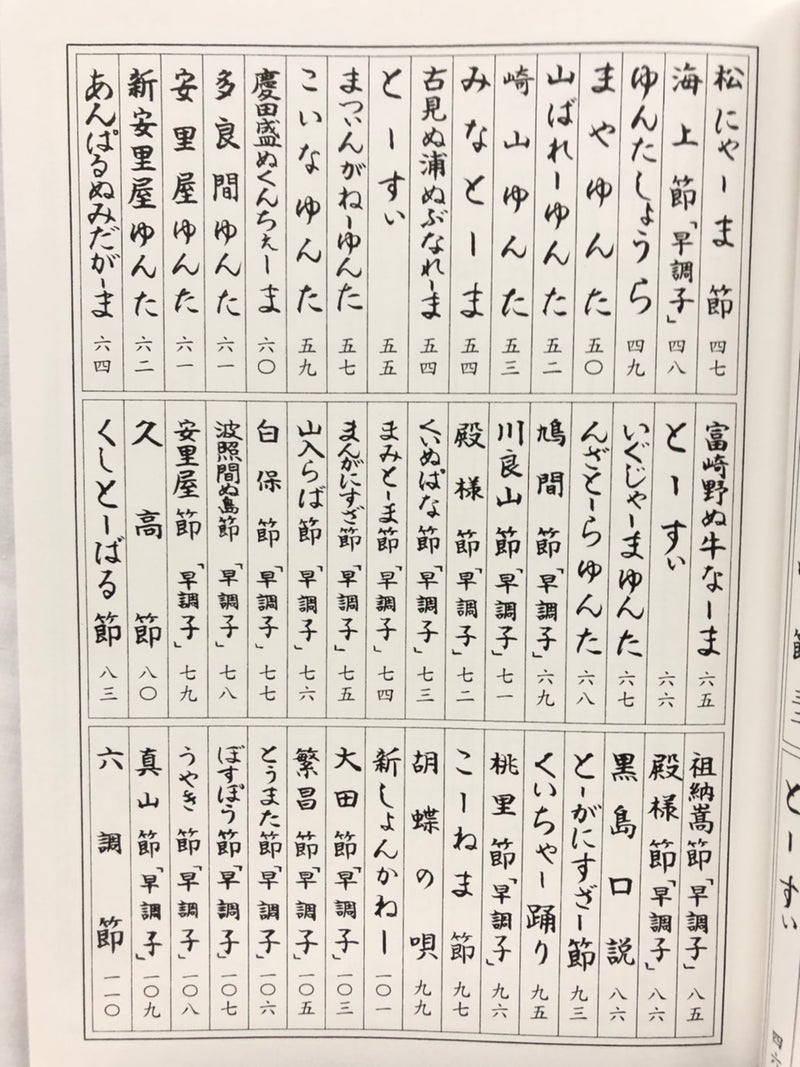 松にゃーま節 四七
海上節「早調子」 四八
ゆんたしょうら 四九
まやゆんた 五〇
山ばれーゆんた 五二
崎山ゆんた 五三
みなとーま 五四
古見ぬ浦ぬぶなれーま 五四
とーすぃ 五五
まついんがねーゆんた 五七
こいなゆんた 五九
慶田盛ぬくんちぇーま 六〇
多良間ゆんた 六一
安里屋ゆんた 六一
新安里屋ゆんた 六二
あんぱるぬみだがーま 六四
富崎野ぬ牛なーま 六五
とーすぃ 六六
いぐじゃーまゆんた 六七
んざとーらゆんた 六八
鳩間節「早調子」 六九
川良山節「早調子」 七一
殿様節「早調子」 七二
くいぬぱな節「早調子」 七三
まみとーま節「早調子」 七四
まんがにすざ節「早調子」 七五
山入らば節「早調子」 七六
白保節「早調子」 七七
波照間ぬ島節「早調子」 七八
安里屋節「早調子」 七九
久高節 八〇
くしとーばる節 八三
祖納嵩節「早調子」 八五
殿様節「早調子」 八六
黒島口説 八六
とーがにすざー節 九三
くいちゃー踊り 九五
桃里節「早調子」 九六
こーねま節 九七
胡蝶の唄 九九
新しょんかねー 一〇一
大田節「早調子」 一〇三
繁昌節「早調子」 一〇五
とぅまた節「早調子」 一〇六
ぼすぽう節「早調子」 一〇七
うやき節「早調子」 一〇八
真山節「早調子」 一〇九
六調節 一一〇
とーすぃ
四六